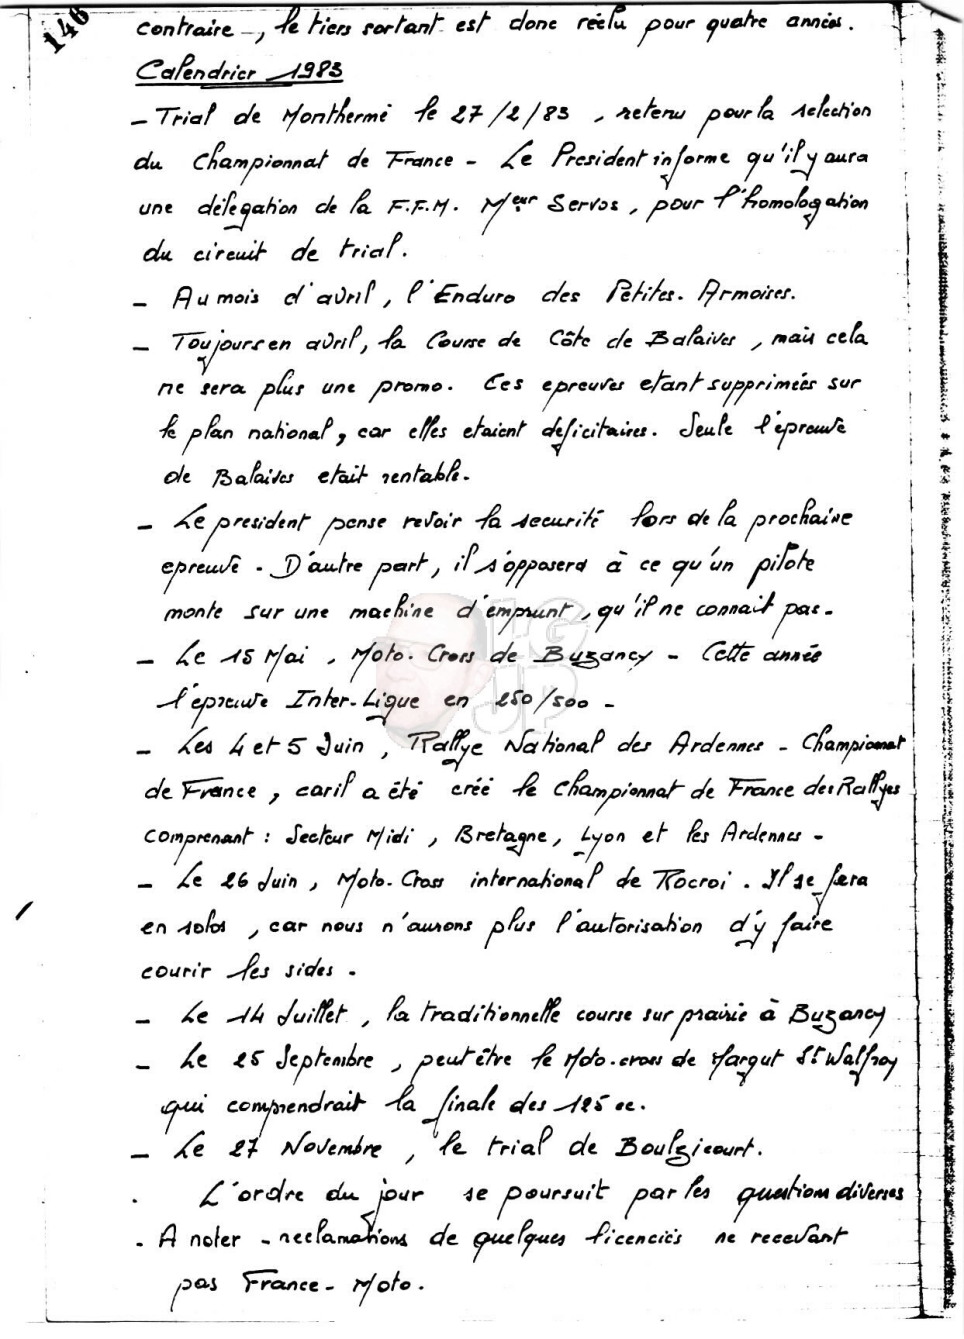 146
contraire -, le tiers sortant est donc réélu pour quatre années.
Calendrier 1983
- Trial de Monthermé le 27/2/83, retenu pour la selection
du Championnat de France - Le President informe qu'il y aura
une délegation de la F.F.M. Meur Servos, pour l'homologation
du circuit de trial.
- Au mois d'avril, l'Enduro des Petites-Armoises.
- Toujours en avril, la Course de Côte de Balaives, mais cela
ne sera plus une promo. Ces epreuves etant supprimées sur
le plan national, car elles etaient deficitaires. Seule l'épreuve
de Balaives etait rentable.
- Le president pense revoir la securité lors de la prochaine
epreuve. D'autre part, il s'opposera à ce qu'un pilote
monte sur une machine d'emprunt, qu'il ne connait pas.
- Le 15 Mai, Moto-Cross de Buzancy - Cette année
l'épreuve Inter-Ligue en 250/500 -
- Les 4 et 5 Juin, Rallye National des Ardennes - Championnat
de France, car il a été créé le Championnat de France des Rallyes
comprenant : Secteur Midi, Bretagne, Lyon et les Ardennes -
- Le 26 Juin, Moto-Cross international de Rocroi. Il se fera
en solos, car nous n'aurons plus l'autorisation d'y faire
courir les sides.
- Le 14 Juillet, la traditionnelle course sur prairie à Buzancy
- Le 25 Septembre, peut être le Moto-cross de Margut St Walfroy
qui comprendrait la finale des 125 cc.
- Le 27 Novembre, le trial de Boulzicourt.
. L'ordre du jour se poursuit par les questions diverses
. A noter - reclamations de quelques licenciés ne recevant
pas France-Moto.
LGJP